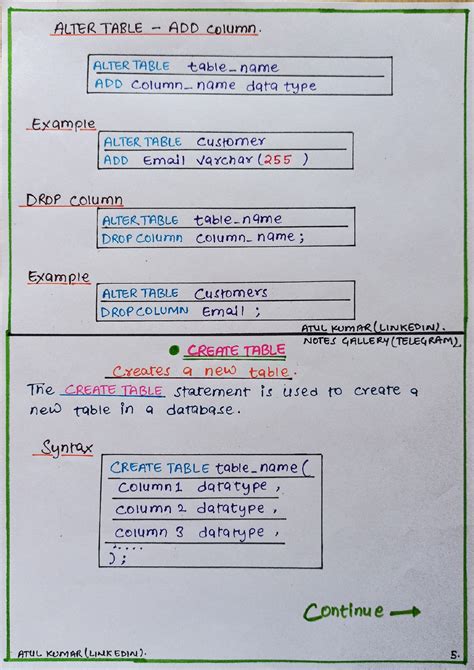 ALTER TABLE - ADD Column.
ALTER TABLE table_name
ADD Column_name data type
Example
ALTER TABLE Customer
ADD Email Varchar (255 )
DROP Column
ALTER TABLE table_name
DROP Column Column_name ;
Example
ALTER TABLE Customers
DROP COLUMN Email ;
ATUL KUMAR (LINKEDIN).
NOTES GALLERY (TELEGRAM)
CREATE TABLE
Creates a new table.
The CREATE TABLE statement is used to create a
new table in a database.
Syntax
CREATE TABLE table_name (
Column1 datatype ,
Column 2 datatype ,
Column 3 datatype ,
.....
);
Continue →
ATUL KUMAR (LINKEDIN).
5.